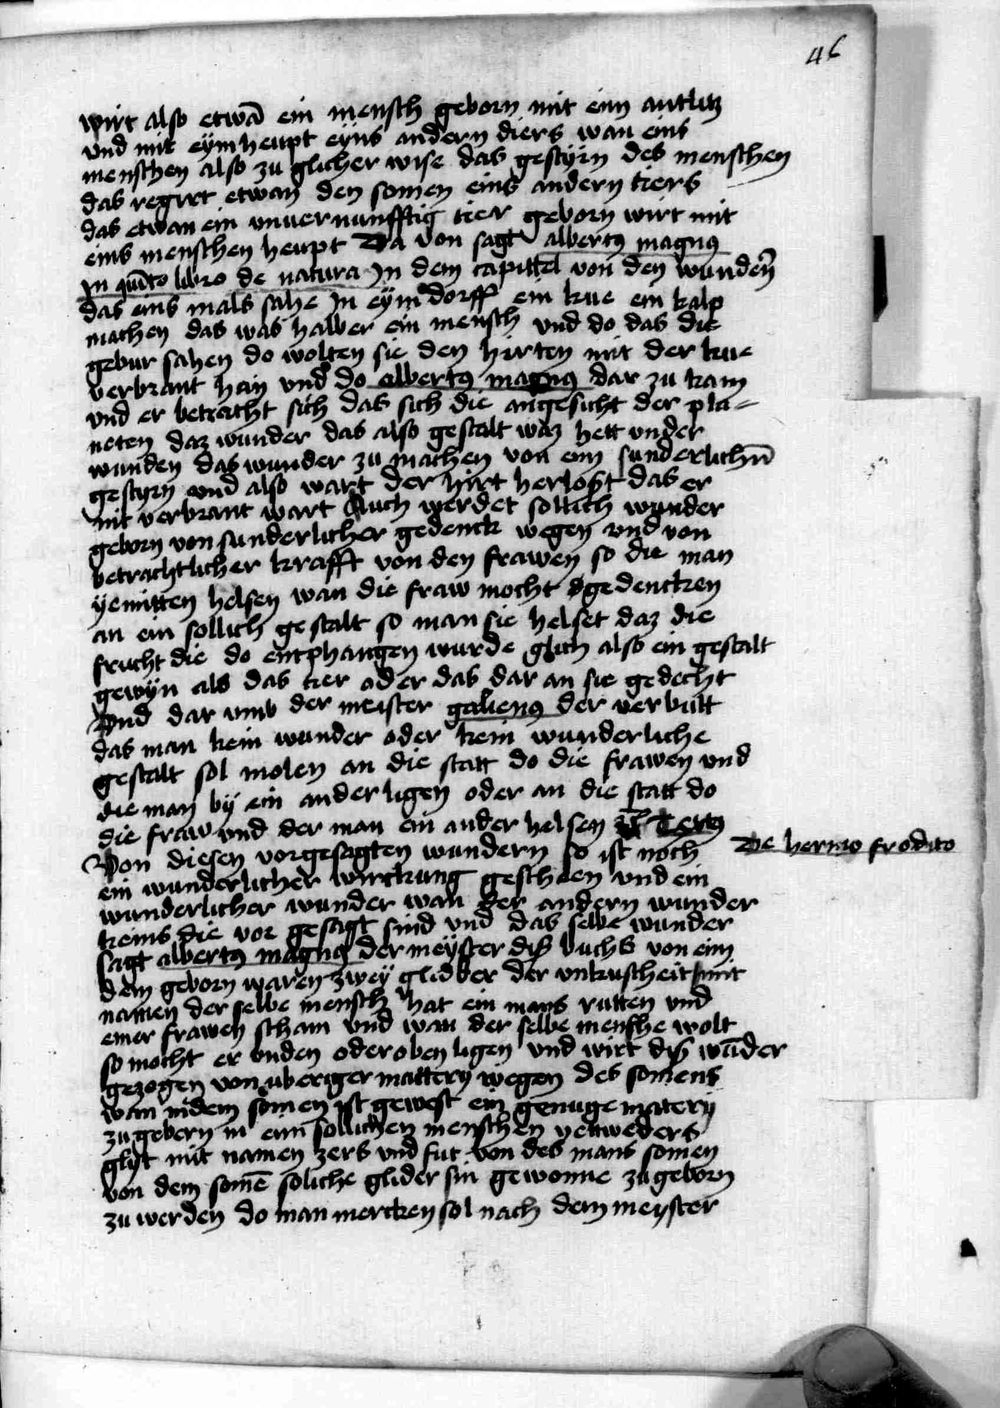 46
wirt also etwā ein mensch geborn mit eim antlitz
und mit eym heupt eyns andern diers wan eins
menschen also zu glicher wise das gestyrn des menschen
das regirt etwan den somen eins andern tiers
das etwan ein unvernunfftig tier geborn wirt mit
eins menschen heupt Da von sagt albertus magnus
In quīto libro de natura In dem capittel von den wunderñ
das eins mals sahe In eym dorff ein kue ein kalp
machen das was halber ein mensch und do das die
gebur sahen do wolten sie den hirten mit der kue
verbrant han und do albertus magnus dar zu kam
und er betracht sich das sich die angesicht der pla-
neten daz wunder das also gestalt waz hett under
wunden das wunder zu machen von eim sunderlichñ
gestyrn und also wart der hirt herlost das er
nit verbrant wart Auch werdet sollich wunder
geborn von sunderlicher gedenck wegen und von
betrachtlicher krafft von den frawen so die man
yemitten helsen wan die fraw mocht gedencken
an ein sollich gestalt so man sie helset daz die
frucht die do entphangen wurde glich also ein gestalt
gewyn als das tier oder das dar an sie gedecht
Und dar umb der meister galienus der verbutt
das man kein wunder oder kein wunderliche
gestalt sol molen an die statt do die frawen und
die man by ein ander ligen oder an die statt do
die fraw und der man ein ander helsen
Von diesen vorgesagten wundern so ist noch
De hermofrodito
ein wunderlicher wirckung gescheen und ein
wunderlicher wunder wan der andern wunder
keins die vor gesagt sind und das selbe wunder
sagt albertus magnus der meyster diß buchs von eim
dem geborn waren zwey glidder der unkuscheit mit
namen der selbe mensch hat ein mans rutten und
einer frawen scham und wan der selbe mensche wolt
so mocht er unden oder oben ligen und wirt diß wūder
gezogen von uberiger mattery wegen des somens
wan in dem somen ist gewest ein genuge matery
zu gebern in eim sollichen menschen yetweders
glyt mit namen zers und fut von des mans somen
von dem somē soliche glider sin gewonne zu geborn
zu werden do man mercken sol nach dem meyster